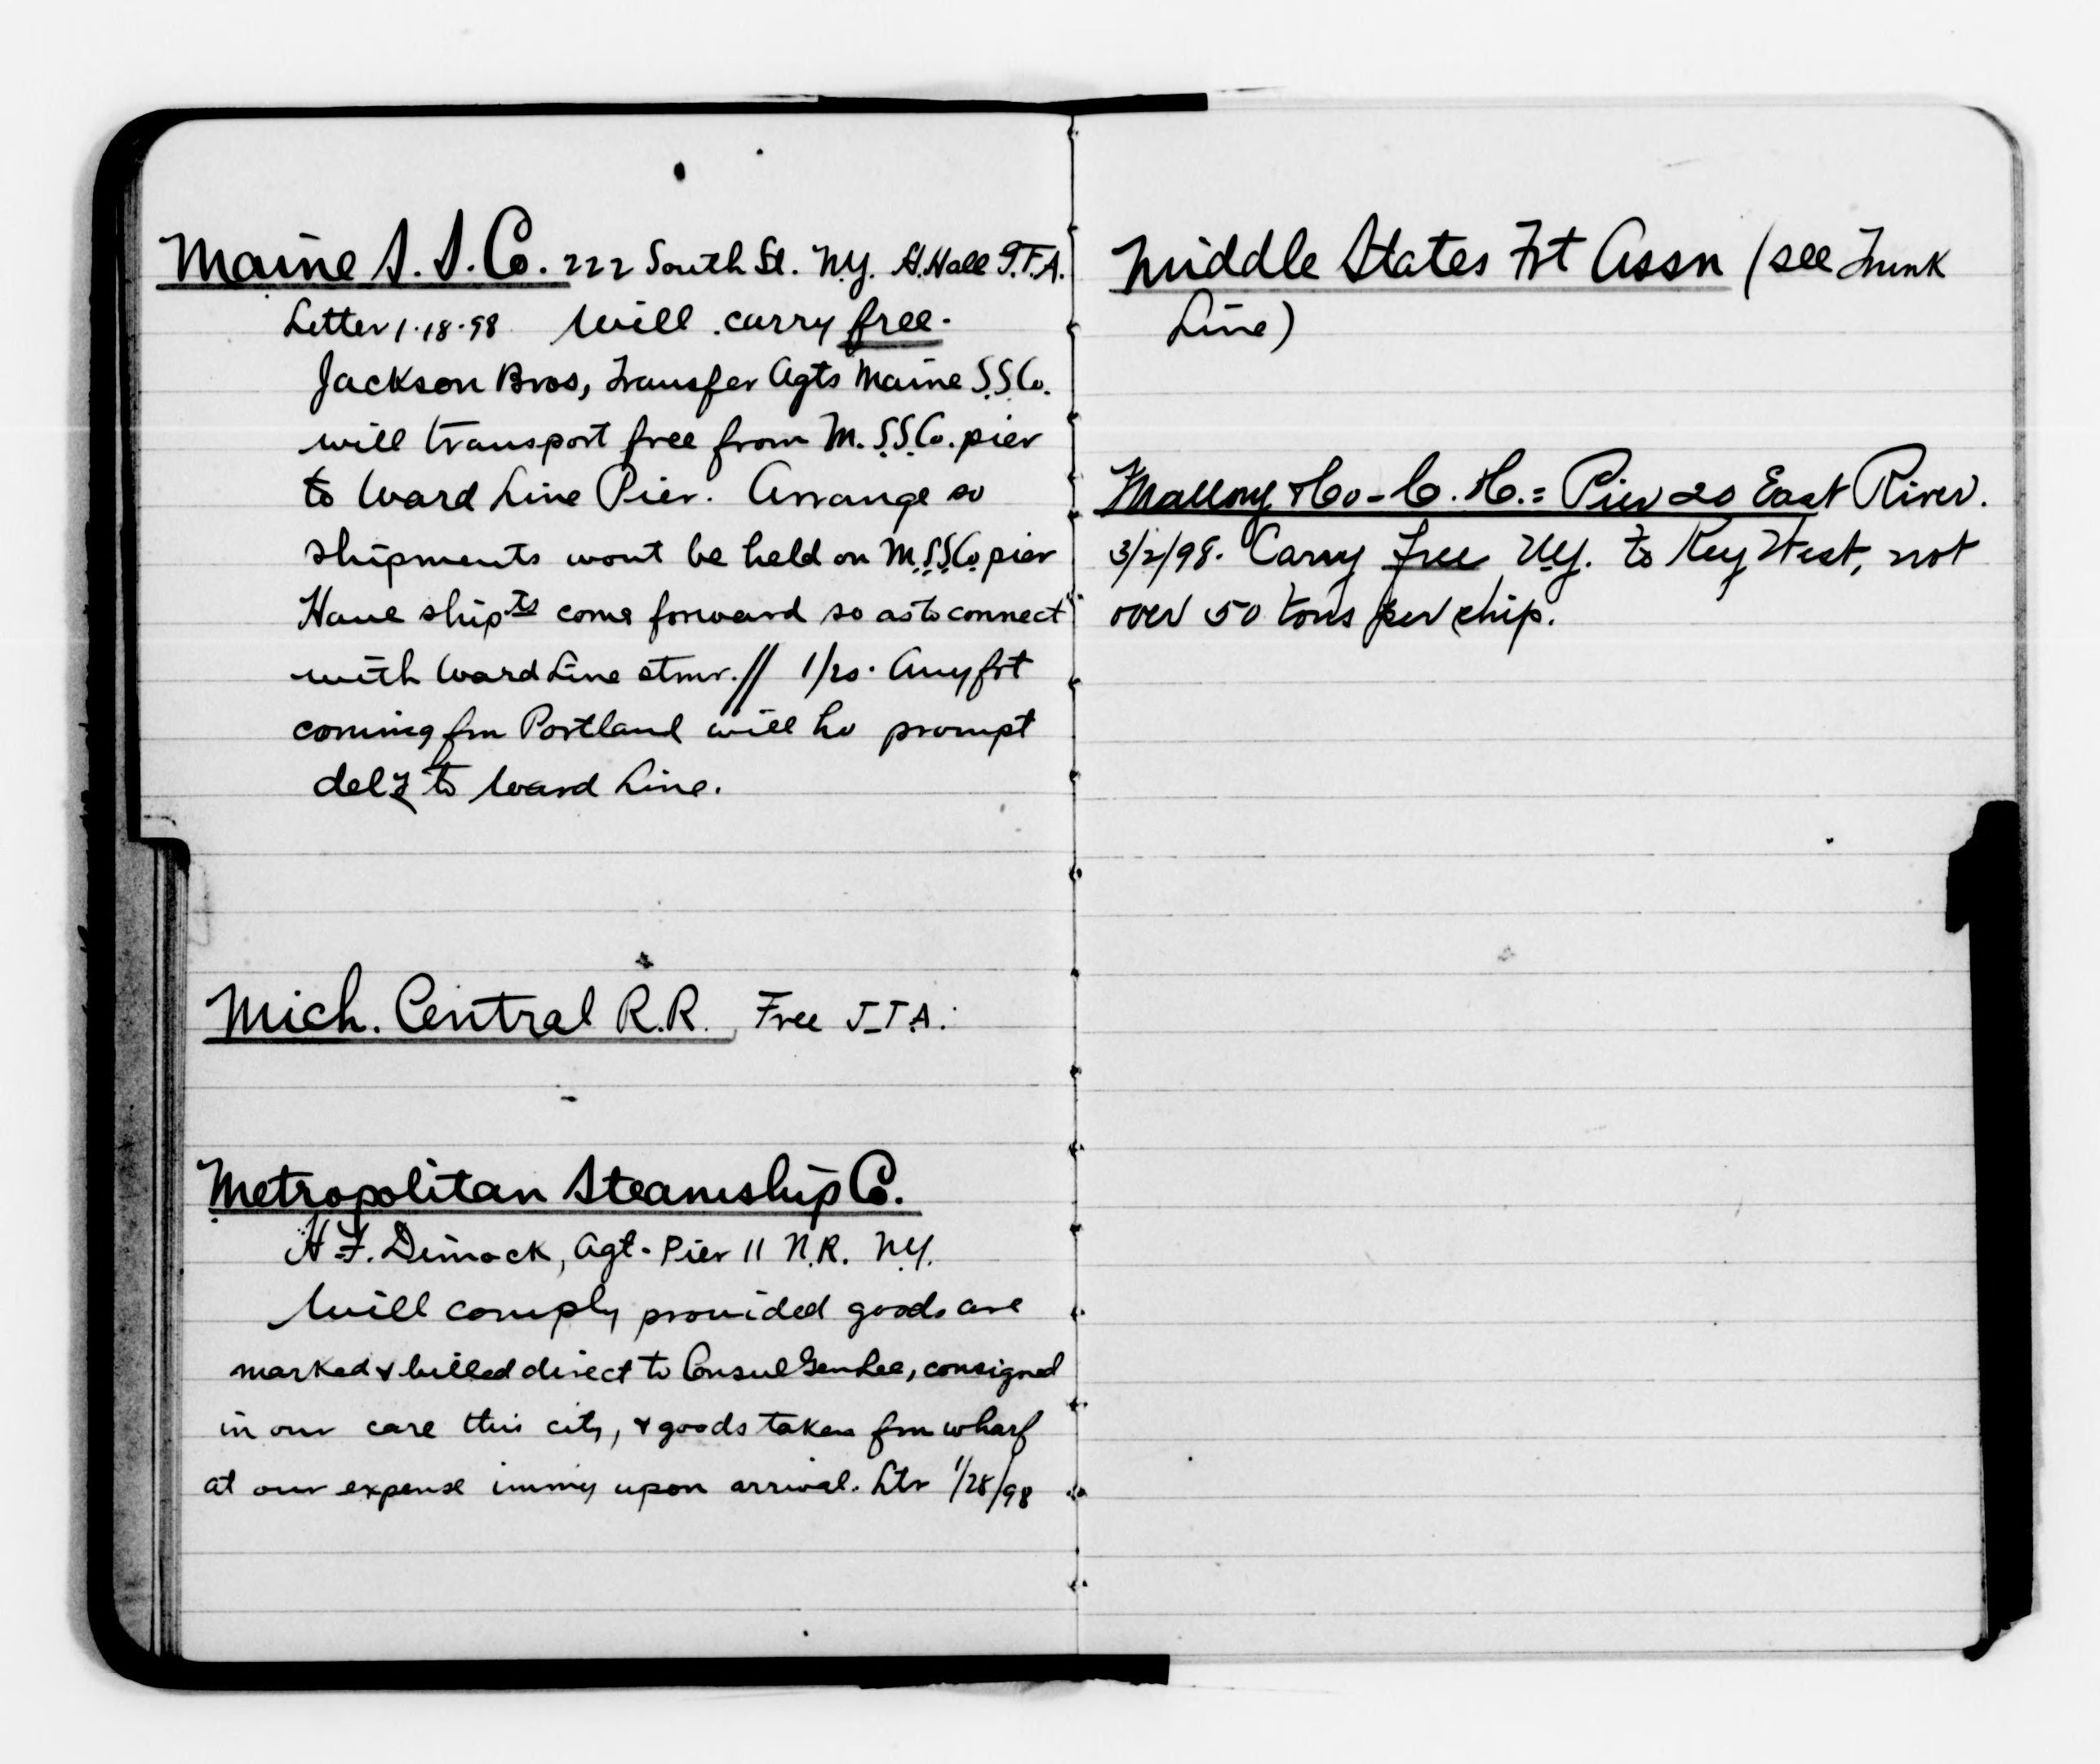 Maine S.S.Co. 222 South St. N.Y. H.Hall T.F.A.
Letter 1.18.98 Will carry free.
Jackson Bros, Transfer Agts Maine S.S.Co.
will transport free from M.S.S.Co. pier
to Ward Line Pier. Arrange so
shipments wont be held on M.S.S.Co pier
Have shipts come forward so as to connect
with Ward Line stmr. // 1/20. Any frt
coming fm Portland will be prompt
dely to Ward Line.
Mich. Central R.R. Free J.T.A.
Metropolitan Steamship Co.
H.F. Dimock, Agt. Pier 11 N.R. N.Y.
Will comply provided goods are
marked & billed direct to Consul Gen Lee, consigned
in our care this city, & goods taken fm wharf
at our expense immy upon arrival. Ltr 1/28/98
Middle States Frt Assn (see Trunk
Line)
Mallory & Co - C. H. = Pier 20 East River.
3/2/98. Carry free N.Y. to Key West, not
over 50 tons per ship.